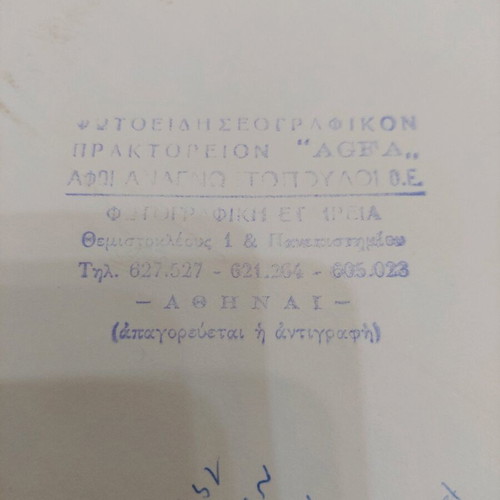 ΦΩΤΟΕΙΔΗΣΕΟΓΡΑΦΙΚΟΝ
ΠΡΑΚΤΟΡΕΙΟΝ "AGFA„
ΑΦΟΙ ΑΝΑΓΝΩΣΤΟΠΟΥΛΟΙ Ο.Ε.
ΦΩΤΟΓΡΑΦΙΚΗ ΕΤΑΙΡΕΙΑ
Θεμιστοκλέους 1 & Πανεπιστημίου
Τηλ. 627.527 - 621.264 - 605.023
- ΑΘΗΝΑΙ -
(ἀπαγορεύεται ἡ ἀντιγραφὴ)